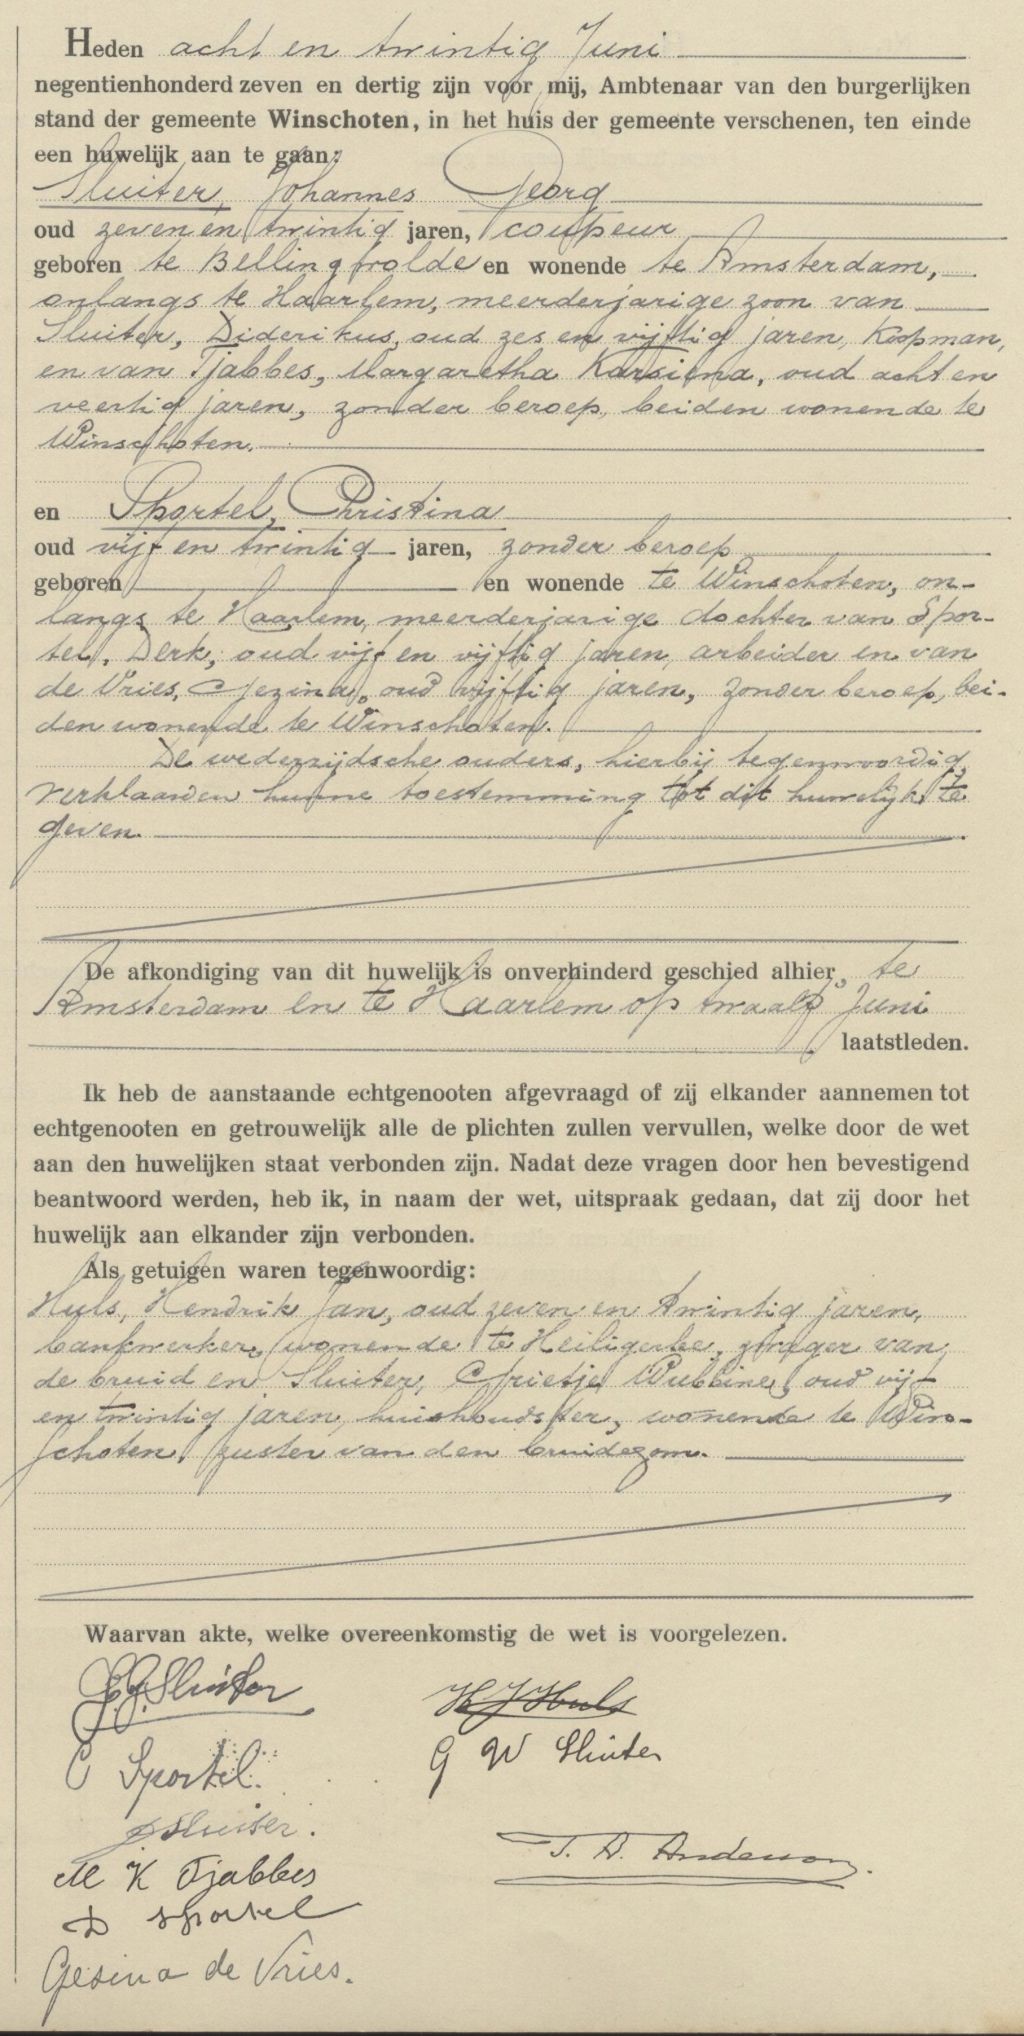 Heden acht en twintig Juni
negentienhonderd zeven en dertig zijn voor mij, Ambtenaar van den burgerlijken
stand der gemeente Winschoten, in het huis der gemeente verschenen, ten einde
een huwelijk aan te gaan:
Sluiter, Johannes Georg
oud zeven en twintig jaren, coupeur
geboren te Bellingwolde en wonende te Amsterdam,
onlangs te Haarlem, meerderjarige zoon van
Sluiter, Diderikus, oud zes en vijftig jaren, Koopman,
en van Tjabbes, Margaretha Karsiena, oud acht en
veertig jaren, zonder beroep, beiden wonende te
Winschoten.
en Sportel, Christina
oud vijf en twintig jaren, zonder beroep
geboren en wonende te Winschoten, on-
langs te Haarlem, meerderjarige dochter van Spor-
tel, Derk, oud vijf en vijftig jaren, arbeider en van
de Vries, Gezina, oud vijftig jaren, zonder beroep, bei-
den wonende te Winschoten.
De wederzijdsche ouders, hierbij tegenwoordig,
verklaarden hunne toestemming tot dit huwelijk te
geven.
De afkondiging van dit huwelijk is onverhinderd geschied alhier, te
Amsterdam en te Haarlem op twaalf Juni
laatstleden.
Ik heb de aanstaande echtgenooten afgevraagd of zij elkander aannemen tot
echtgenooten en getrouwelijk alle de plichten zullen vervullen, welke door de wet
aan den huwelijken staat verbonden zijn. Nadat deze vragen door hen bevestigend
beantwoord werden, heb ik, in naam der wet, uitspraak gedaan, dat zij door het
huwelijk aan elkander zijn verbonden.
Als getuigen waren tegenwoordig:
Huls, Hendrik Jan, oud zeven en twintig jaren,
bankwerker, wonende te Heiligerlee, zwager van
de bruid en Sluiter, Grietje Wubbine, oud vijf
en twintig jaren, huishoudster, wonende te Win-
schoten, zuster van den bruidegom.
Waarvan akte, welke overeenkomstig de wet is voorgelezen.
J.G. Sluiter
H J Huls
C Sportel.
G W Sluiter
D Sluiter.
T. A. Anderson.
M K Tjabbes
D Sportel
Gesina de Vries.